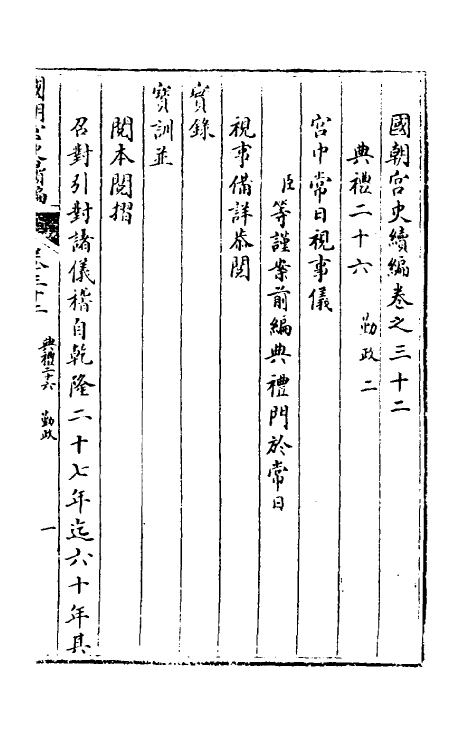 國朝宮史續編卷之三十二
典禮二十六 勤政二
宮中常日視事儀
臣等謹案前編典禮門於常日
視事備詳恭閱
實錄
寳訓並
閱本閱摺
召對引對諸儀稽自乾隆二十七年迄六十年其
國朝宮史續編 卷三十二 典禮二十六 勤政 一